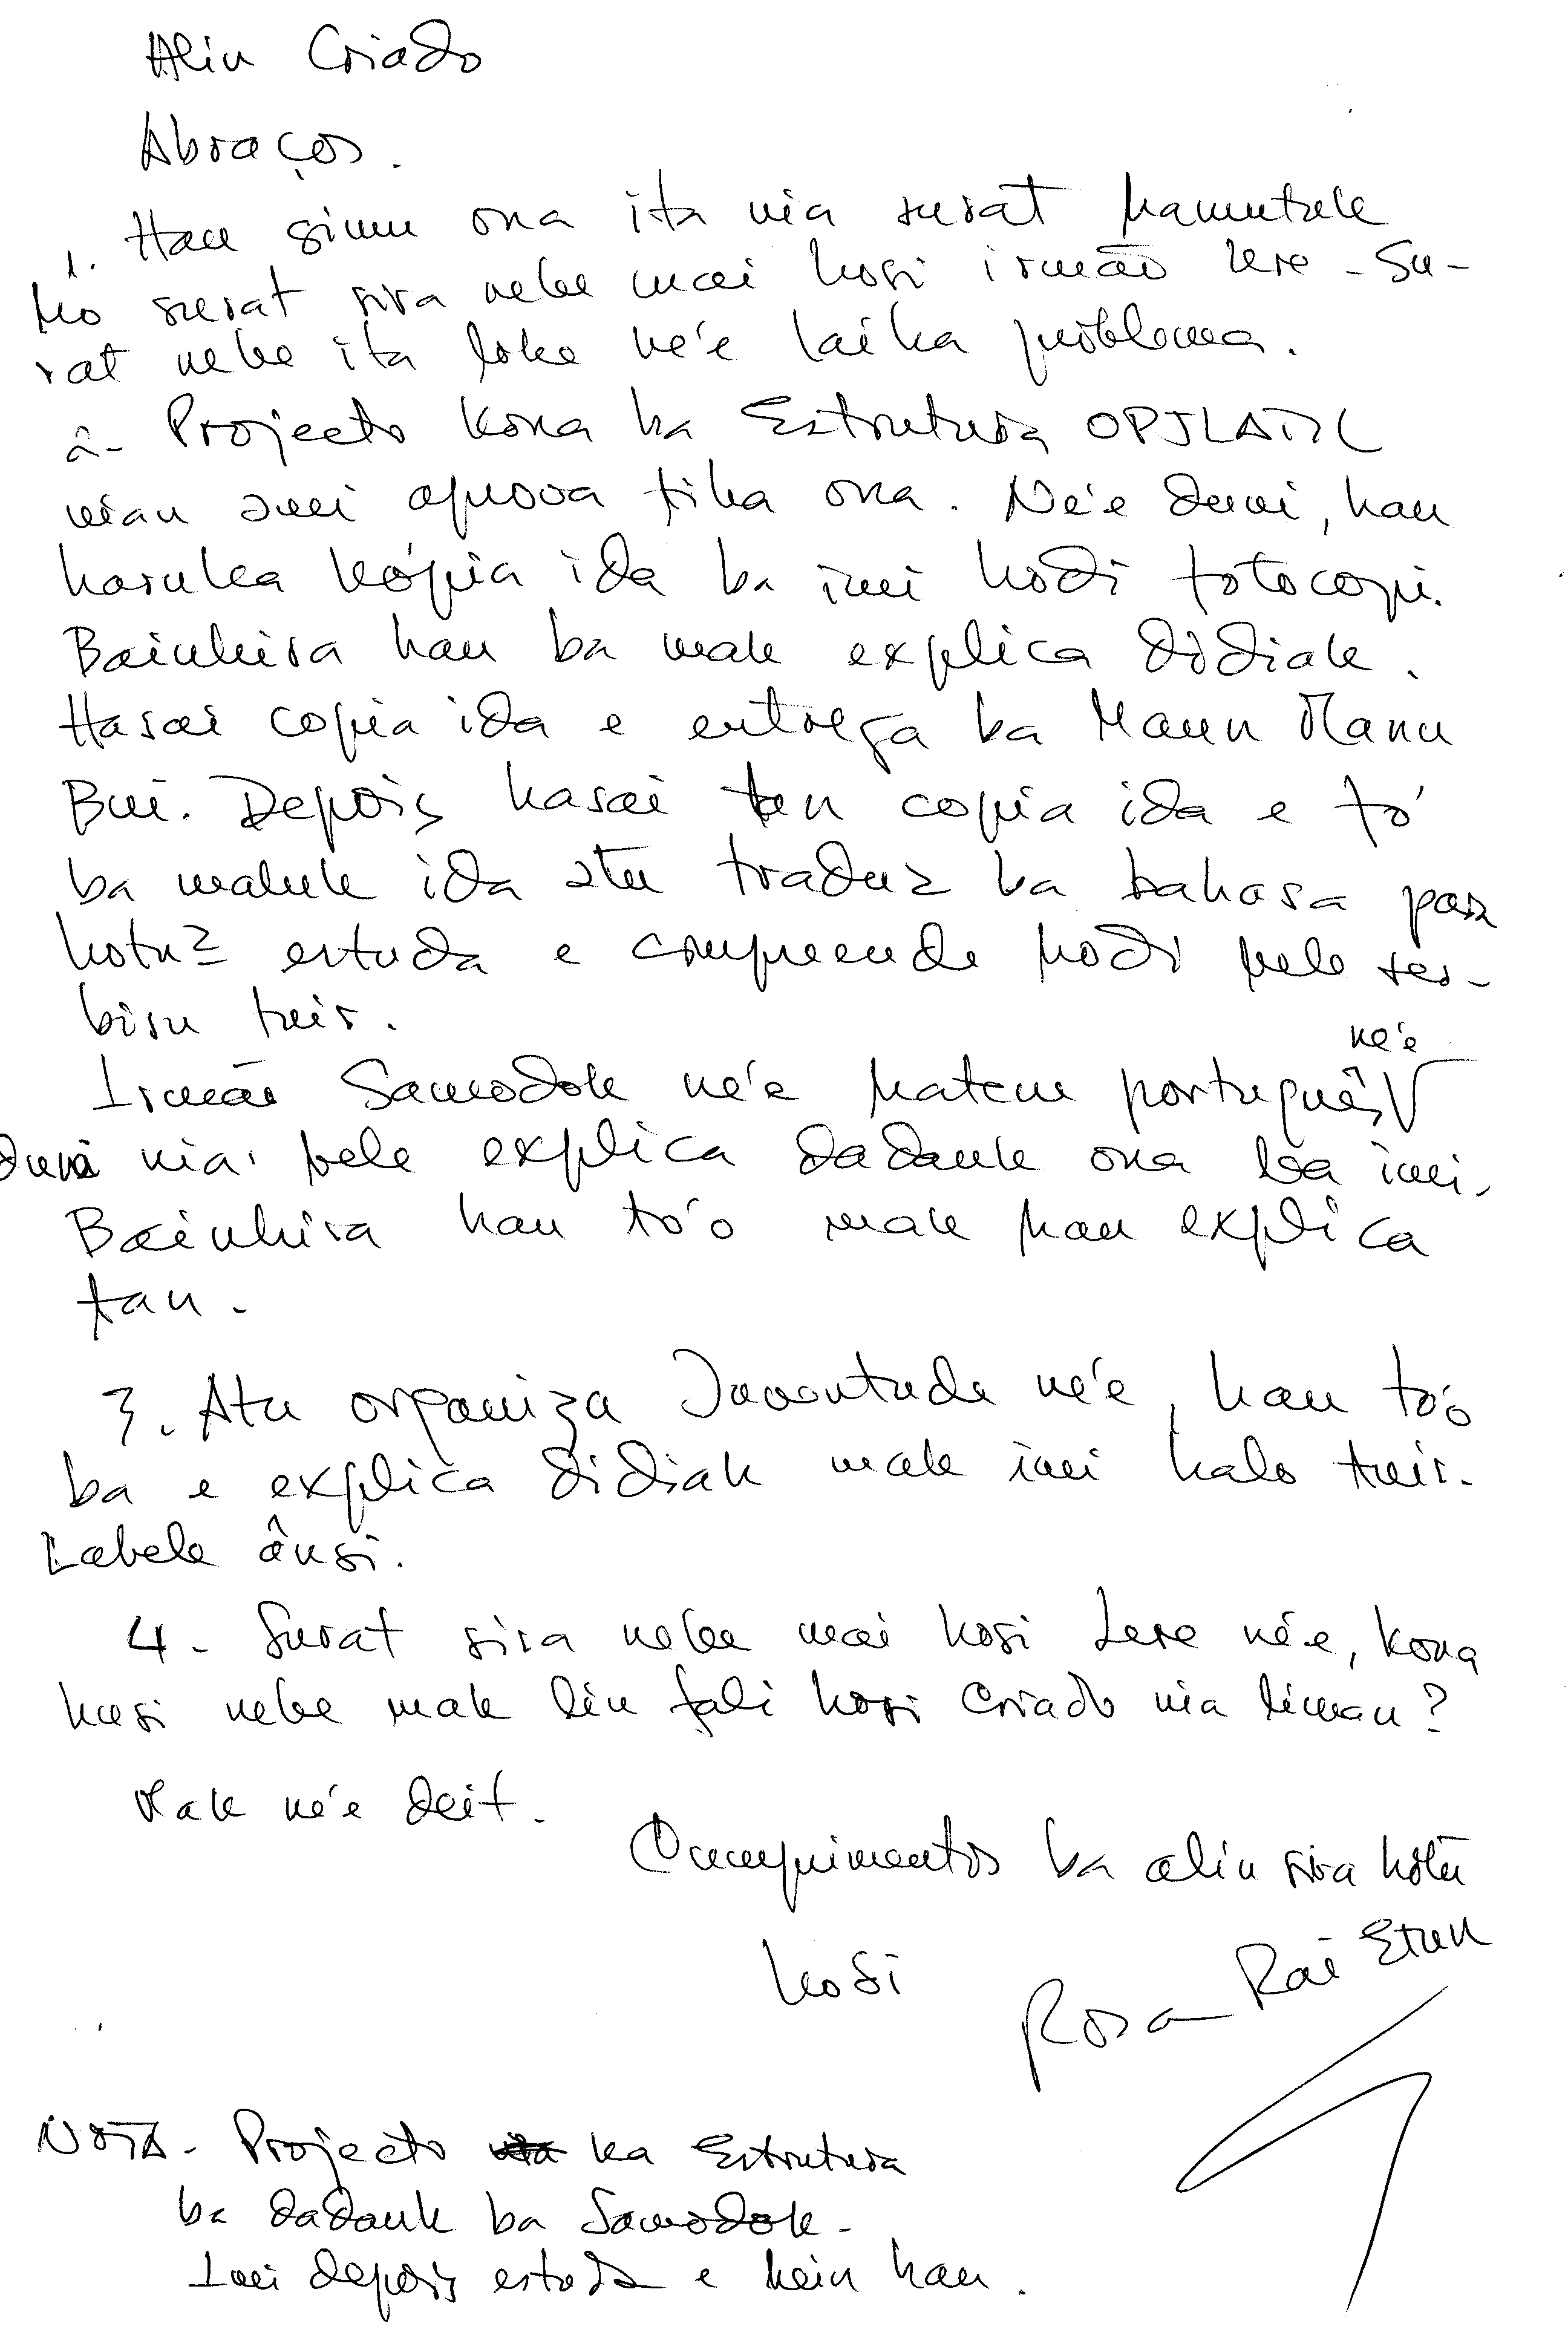 Alin Criado
Abraços.
1. Hau simu ona ita nia surat hamutuk
ho surat sira nebe mai hosi irmão Lere - Su-
rat nebe ita loke ne'e laika problema.
2- Projecto kona ba Estrutura OPJLATIL
nian ami aprova tiha ona. Ne'e duni, hau
haruka kópia ida ba imi hodi fotocopi.
Bainhira hau ba mak explica didiak.
Hasai copia ida e entrega ba Maun Manu
Bui. Depois hasai tan copia ida e fó
ba maluk ida atu traduz ba bahasa para
hotu2 estuda e compreende hodi bele ser-
bisu tuir.
Irmão Samodok ne'e hatene português ne'e
duni nia bele explica dadauk ona ba imi.
Bainhira hau to'o mak hau explica
tan.
3. Atu organiza Juventude ne'e, hau to'o
ba e explica didiak mak imi halo tuir.
Labele ânsi.
4- Surat sira nebe mai hosi Lere ne'e, kona
husi nebe mak liu fali hosi Criado nia liman?
Mak ne'e deit.
Cumprimentos ba alin sira hotu
hosi
Rosa Rai Etuk
NOTA- Projecto ba Estrutura
ba dadauk ba Samodok-
Imi depois estuda e hein hau.